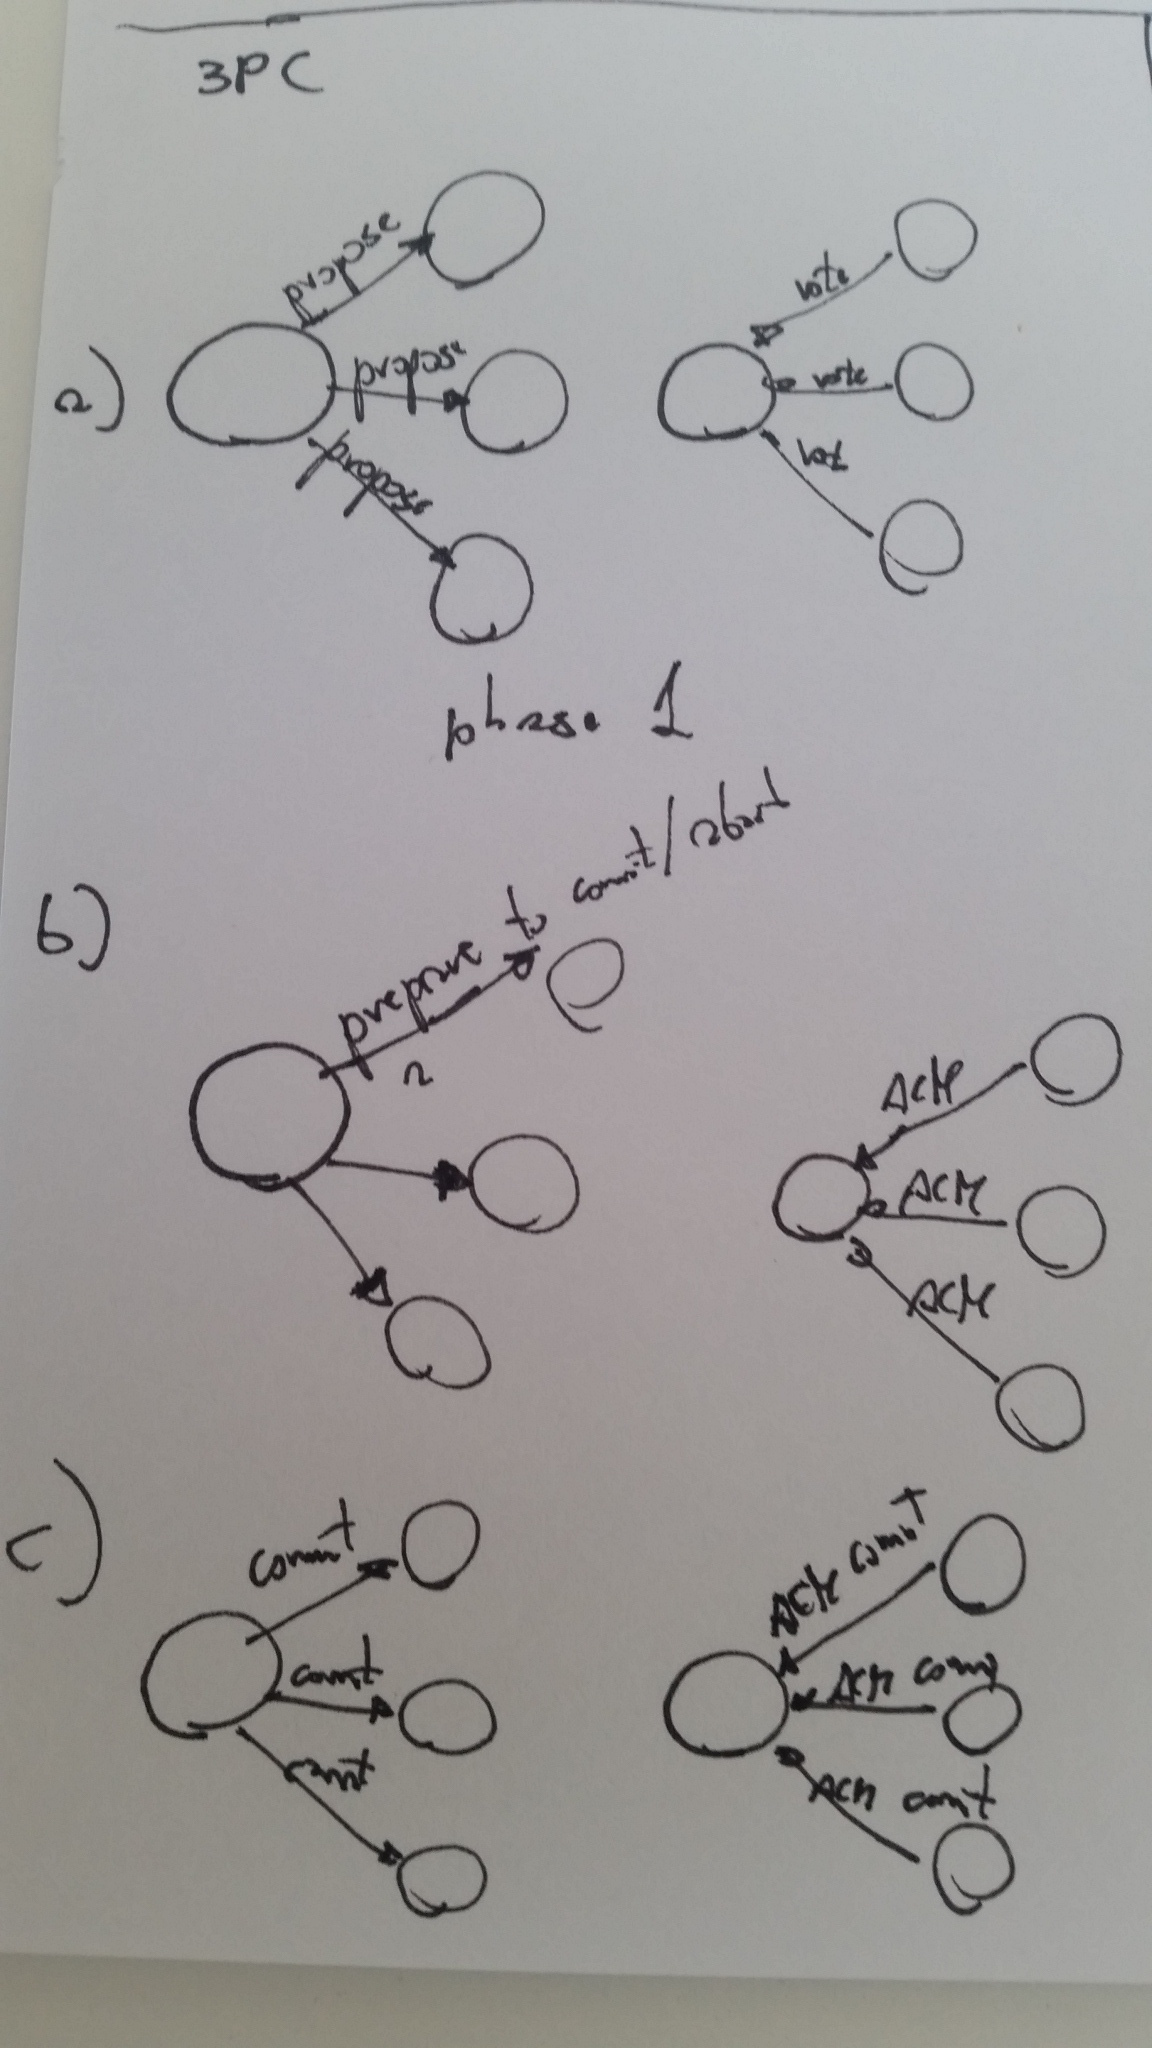 3PC
a)
propose
propose
propose
vote
vote
vot
phase 1
b)
prepare to commit/abort
2
ACK
ACK
ACK
c)
commit
commt
commt
ACK commit
ACK comm
ACK commt